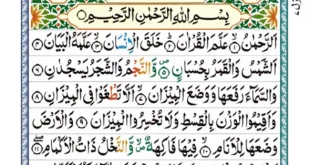 بِسْمِ اللّٰهِ الرَّحْمٰنِ الرَّحِيْمِ
اَلرَّحْمٰنُ ۙ عَلَّمَ الْقُرْاٰنَ ؕ خَلَقَ الْاِنْسَانَ ۙ عَلَّمَهُ الْبَيَانَ
اَلشَّمْسُ وَالْقَمَرُ بِحُسْبَانٍ ۪ وَّالنَّجْمُ وَالشَّجَرُ يَسْجُدٰنِ
وَالسَّمَآءَ رَفَعَهَا وَوَضَعَ الْمِيْزَانَ ۙ اَلَّا تَطْغَوْا فِى الْمِيْزَانِ ۸
وَاَقِيْمُوا الْوَزْنَ بِالْقِسْطِ وَلَا تُخْسِرُوا الْمِيْزَانَ ۹ وَالْاَرْضَ
وَضَعَهَا لِلْاَنَامِ ۙ فِيْهَا فَاكِهَةٌ ۪ وَّالنَّخْلُ ذَاتُ الْاَكْمَامِ ۱۱